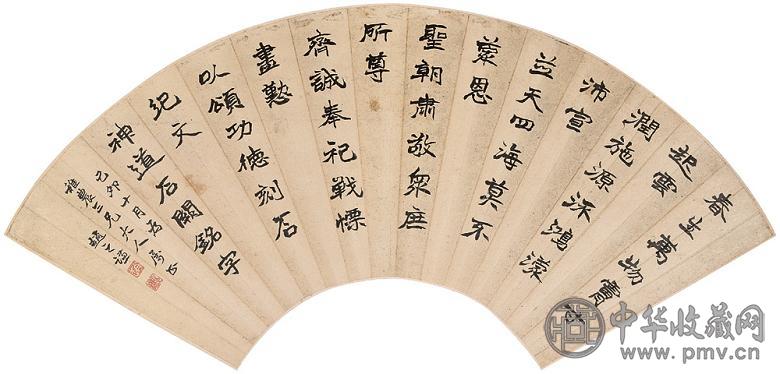 春生萬物膚寸
起雲
潤施源流鴻濛
沛宣
並天四海莫不
蒙恩
聖朝肅敬眾庶
所尊
齊誠奉祀戰慄
盡懃
以頌功德刻石
紀文
神道石闕銘字
己卯十月為
雅農三兄大人屬正
趙之謙
中华收藏网
www.pmv.cn